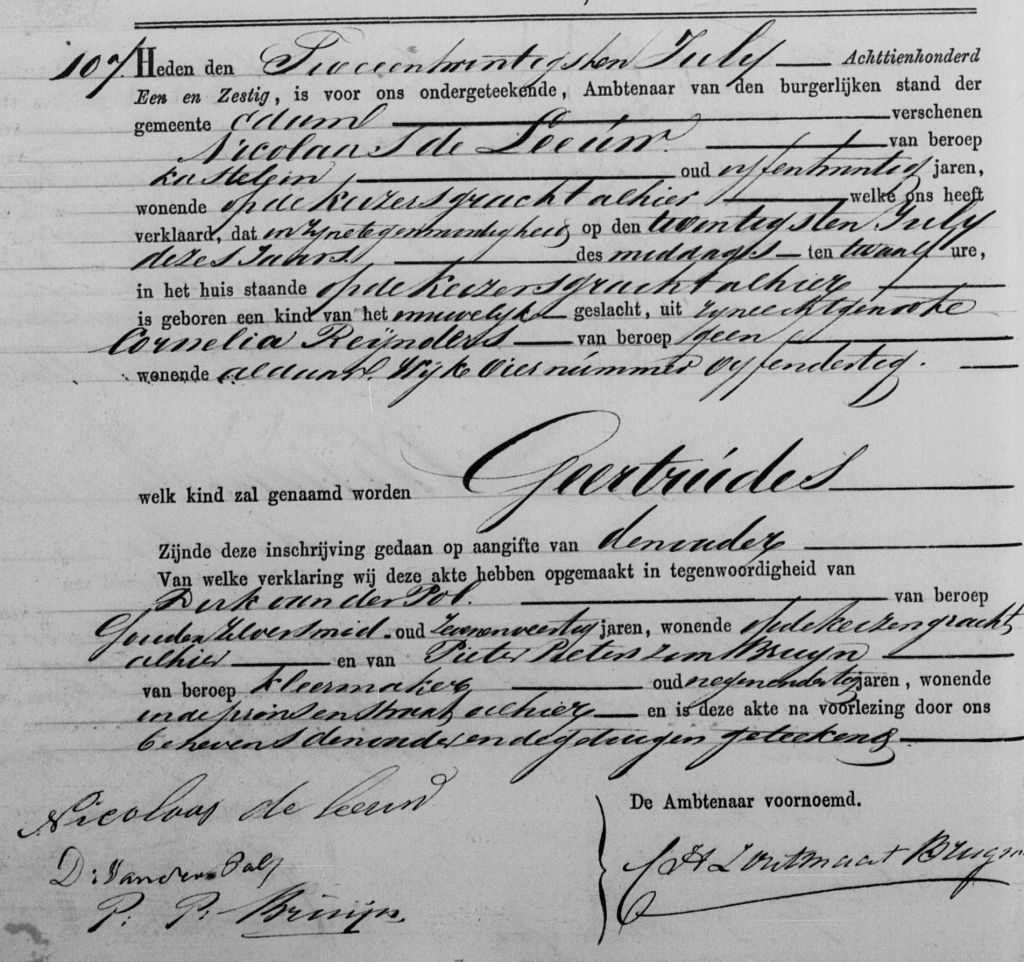 107. Heden den Tweeentwintigsten July Achttienhonderd
Een en Zestig, is voor ons ondergeteekende, Ambtenaar van den burgerlijken stand der
gemeente Edam verschenen
Nicolaas de Leeuw van beroep
kastelein oud vyfentwintig jaren,
wonende op de keizersgracht alhier welke ons heeft
verklaard, dat in zyne tegenwoordigheid op den twintigsten July
dezes Jaars des middags ten twaalf ure,
in het huis staande op de Keizersgracht alhier
is geboren een kind van het vrouwelyk geslacht, uit zyne echtgenoote
Cornelia Reijnders van beroep geen
wonende aldaar. Wijk vier nummer vyfendertig.
welk kind zal genaamd worden Geertruides
Zijnde deze inschrijving gedaan op aangifte van den vader
Van welke verklaring wij deze akte hebben opgemaakt in tegenwoordigheid van
Dirk van der Pol. van beroep
Goud en Zilversmid oud zevenenveertig jaren, wonende op de keizersgracht
alhier en van Pieter Pieterszoon Bruyn
van beroep kleermaker oud negenendertig jaren, wonende
in de prinsenstraat alhier en is deze akte na voorlezing door ons
benevens den vader en de getuigen geteekend
Nicolaas de Leeuw
D: van der Pol
P: P: Bruijn
De Ambtenaar voornoemd.